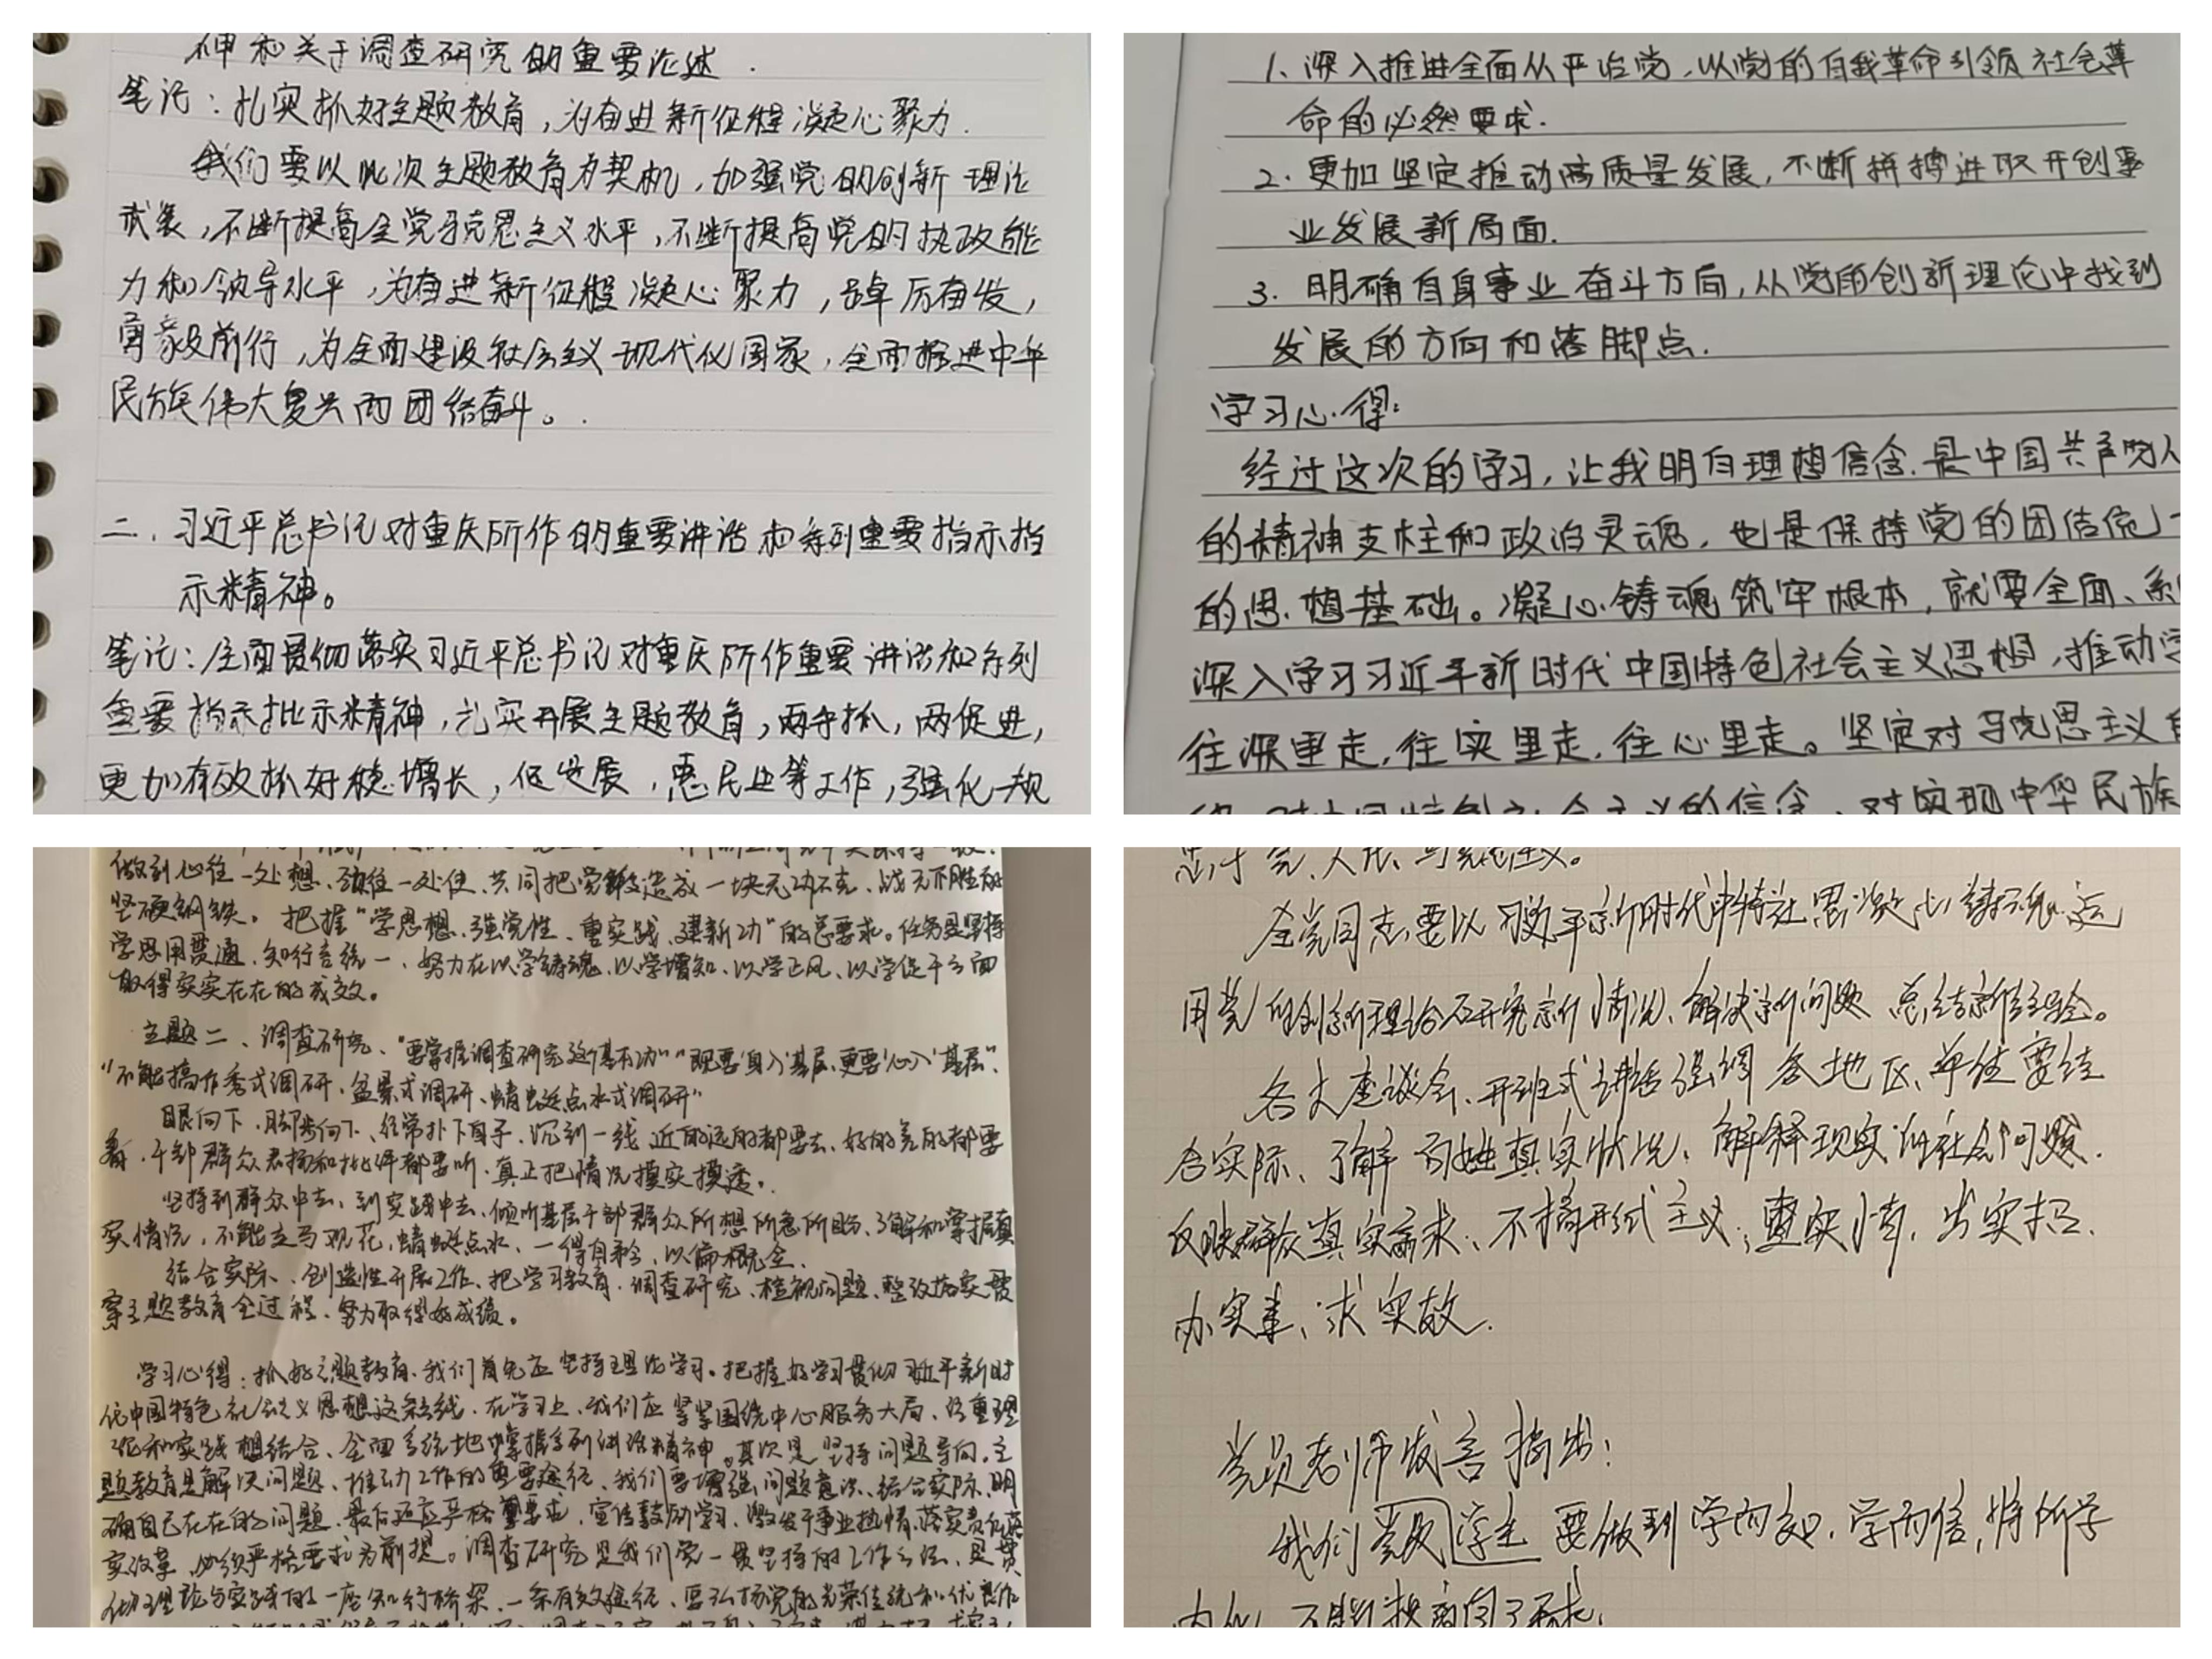 神和关于调查研究的重要论述.
笔记：扎实抓好主题教育，为奋进新征程凝心聚力.
我们要以此次主题教育为契机，加强党的创新理论
武装，不断提高全党马克思主义水平，不断提高党的执政能
力和领导水平，为奋进新征程凝心聚力，踔厉奋发，
勇毅前行，为全面建设社会主义现代化国家，全面推进中华
民族伟大复兴而团结奋斗。
二、习近平总书记对重庆所作的重要讲话和系列重要指示指
示精神。
笔记：全面贯彻落实习近平总书记对重庆所作重要讲话和系列
重要指示批示精神，扎实开展主题教育，两手抓，两促进，
更加有效抓好稳增长，促发展，惠民生等工作，强化规
1、深入推进全面从严治党，以党的自我革命引领社会革
命的必然要求.
2. 更加坚定推动高质量发展，不断拼搏进取开创事
业发展新局面.
3. 明确自身事业奋斗方向，从党的创新理论中找到
发展的方向和落脚点.
学习心得：
经过这次的学习，让我明白理想信念，是中国共产党人
的精神支柱和政治灵魂，也是保持党的团结统一
的思想基础。凝心铸魂筑牢根本，就要全面、系
深入学习习近平新时代中国特色社会主义思想，推动学
往深里走，往实里走，往心里走。坚定对马克思主义
对中国特色社会主义的信念，对实现中华民族
做到心往一处想、劲往一处使、共同把党锻造成一块无功不克、战无不胜的
坚硬钢铁。把握“学思想、强党性、重实践、建新功”的总要求。任务是坚持
学思用贯通、知行言统一、努力在以学铸魂、以学增知、以学正风、以学促干方面
取得实实在在的成效。
主题二、调查研究、“要掌握调查研究这个基本功”“既要‘身入’基层、更要‘心入’基层”、
“不能搞作秀式调研、盆景式调研、蜻蜓点水式调研”
眼向下、脚步向下、经常扑下身子、沉到一线，近的远的都要去、好的差的都要
看、干部群众表扬和批评都要听、真正把情况摸实摸透。
坚持到群众中去、到实践中去、倾听基层干部群众所想所急所盼、了解和掌握真
实情况，不能走马观花、蜻蜓点水、一得自矜、以偏概全、
结合实际、创造性开展工作、把学习教育、调查研究、检视问题、整改落实贯
穿主题教育全过程、努力取得好成绩。
学习心得：抓好主题教育、我们首先应坚持理论学习。把握好学习贯彻习近平新时
代中国特色社会主义思想这条主线、在学习上、我们应紧紧围绕中心服务大局、注重理
论和实践相结合、全面系统地掌握系列讲话精神。其次是坚持问题导向、主
题教育是解决问题、推动工作的重要途径、我们要增强问题意识、结合实际、明
确自己存在的问题、最后还应严格要求，宣传鼓励学习、激发干事业热情，落实责任落
实改革、必须严格要求为前提。调查研究是我们党一贯坚持的工作方法、是贯
彻理论与实践的一座知行桥梁、一条有效途径、要弘扬党的光荣传统和优良作
全党同志要以习近平新时代中特社思想凝心铸魂、运
用党的创新理论研究新情况、解决新问题 总结新经验。
各大座谈会、开班式讲话强调 各地区、单位要结
合实际、了解百姓真实状况、解释现实的社会问题.
反映群众真实需求、不搞形式主义；查实情，出实招.
办实事、求实效.
党员老师发言摘出：
我们党员学生要做到学而知，学而信，将所学
内化，不断提高自己要求.